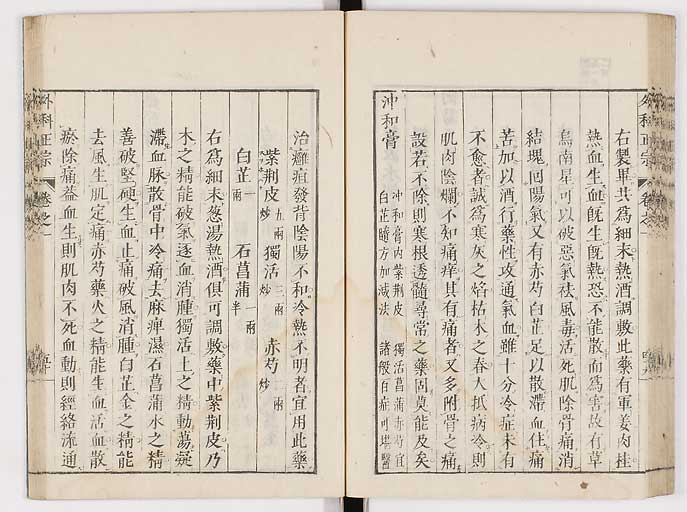 外科正宗 卷之一
右製畢共爲細末熱酒調敷此藥有軍姜肉挂
熱血生血旣生旣熱恐不能散而爲害故有草
烏南星可以破惡氣祛風毒活死肌除骨痛消
結塊囘陽氣又有赤芍白芷足以散滯血住痛
苦加以酒行藥性攻通氣血雖十分冷症未有
不愈者誠爲寒灰之焰枯木之春大抵病冷則
肌肉陰爛不知痛痒其有痛者又多附骨之痛
設若不除則寒根透髓尋常之藥固莫能及矣
冲和膏
冲和膏內紫荆皮 獨活菖蒲赤芍宜
白芷隨方加減法 諸般百症可堪醫
治癰疽發背陰陽不和冷熱不明者宜用此藥
紫荆皮 五兩炒 獨活 三兩炒 赤芍 二兩炒
白芷 一兩 石菖蒲 一兩半
右爲細末葱湯熱酒俱可調敷藥中紫荆皮乃
木之精能破氣逐血消腫獨活土之精動蕩凝
滯血脉散骨中冷痛去麻痺濕石菖蒲水之精
善破堅硬生血止痛破風消腫白芷金之精能
去風生肌定痛赤芍藥火之精能生血活血散
瘀除痛葢血生則肌肉不死血動則經絡流通
外科正宗 卷之一